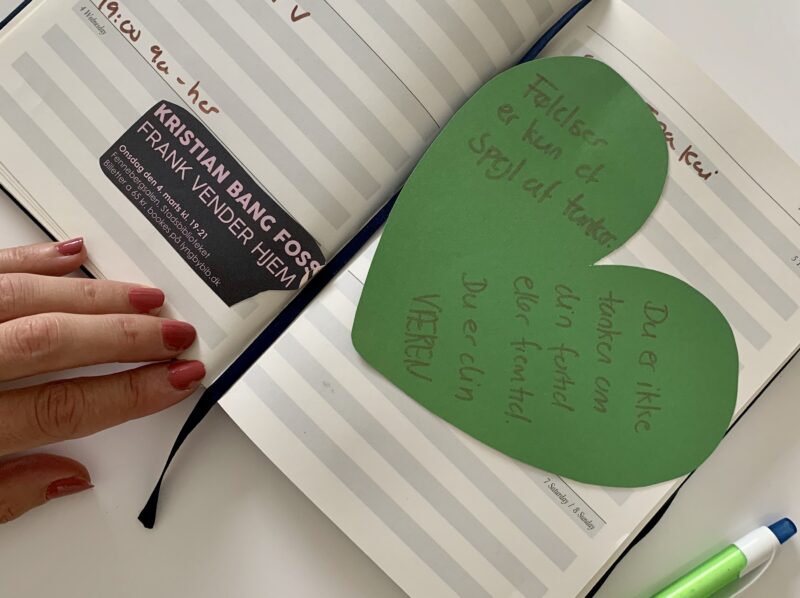 4 Wednesday
19:00 9a - her
KRISTIAN BANG FOSS
FRANK VENDER HJEM
Onsdag den 4. marts kl. 19-21
Fennebergsalen, Stadsbiblioteket
Billetter a 65 kr. bookes på lyngbybib.dk
Følelser
er kun et
spejl af tanker.
Du er ikke
tanken om
din fortid
eller fremtid.
Du er din
VÆREN
7 Saturday / 8 Sunday